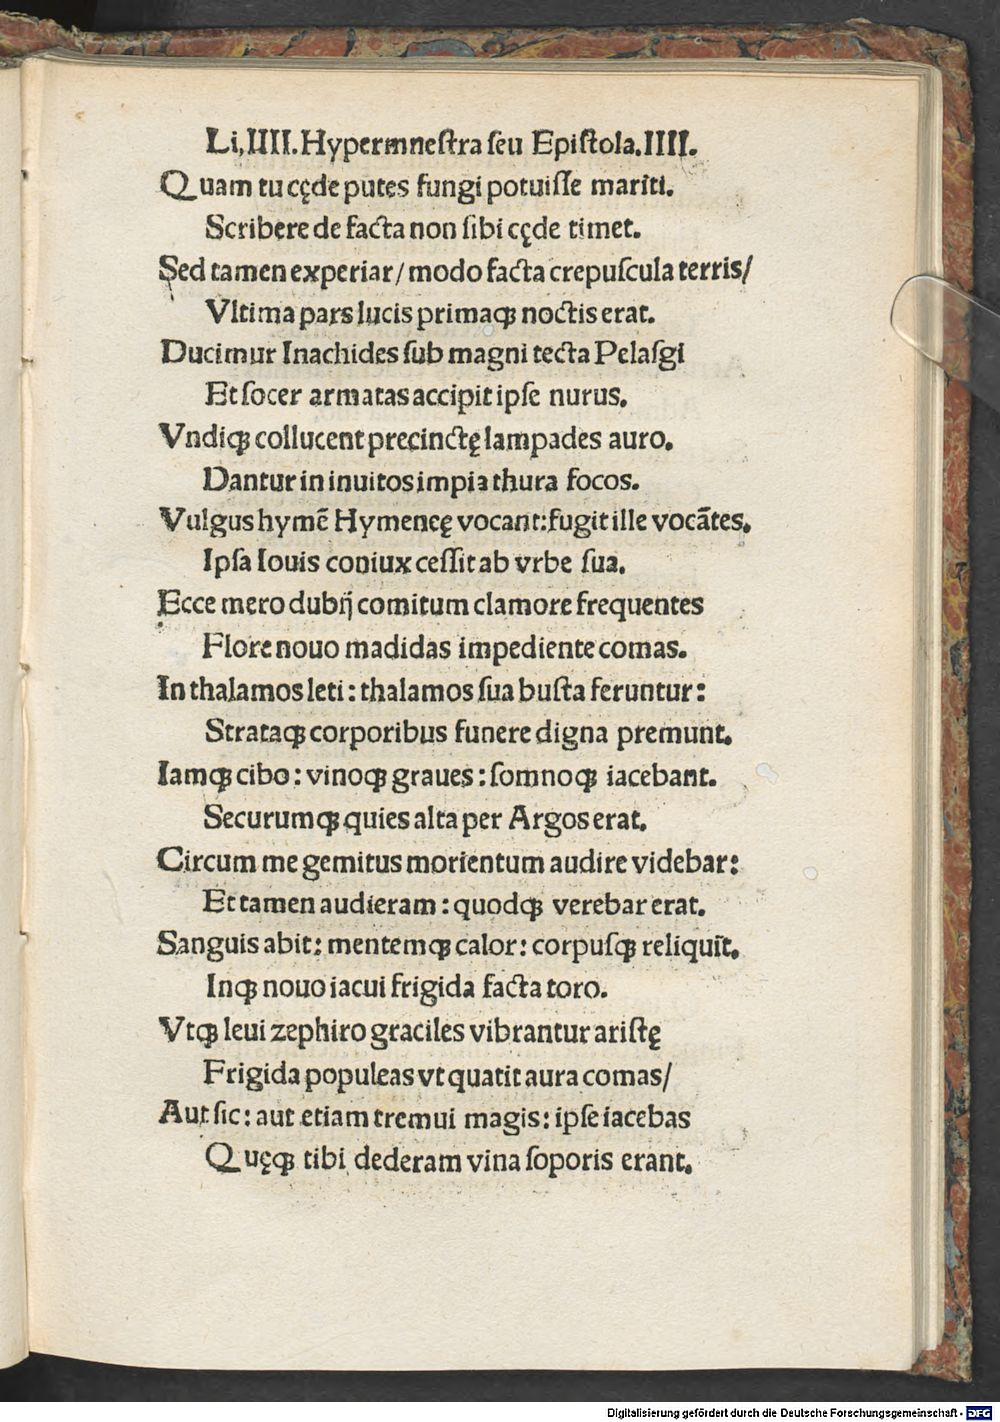 Li,IIII.Hypermnestra seu Epistola.IIII.
Quam tu cęde putes fungi potuisse mariti.
Scribere de facta non sibi cęde timet.
Sed tamen experiar/modo facta crepuscula terris/
Vltima pars lucis primaꝗ noctis erat.
Ducimur Inachides sub magni tecta Pelasgi
Et socer armatas accipit ipse nurus.
Vndiꝗ collucent precinctę lampades auro.
Dantur in inuitos impia thura focos.
Vulgus hymē Hymencę vocant:fugit ille vocātes.
Ipsa Iouis coniux cessit ab vrbe sua.
Ecce mero dubij comitum clamore frequentes
Flore nouo madidas impediente comas.
In thalamos leti: thalamos sua busta feruntur:
Strataꝗ corporibus funere digna premunt.
Iamꝗ cibo: vinoꝗ graues: somnoꝗ iacebant.
Securumꝗ quies alta per Argos erat.
Circum me gemitus morientum audire videbar:
Et tamen audieram: quodꝗ verebar erat.
Sanguis abit: mentemꝗ calor: corpusꝗ reliquit.
Inꝗ nouo iacui frigida facta toro.
Vtꝗ leui zephiro graciles vibrantur aristę
Frigida populeas vt quatit aura comas/
Aut sic: aut etiam tremui magis: ipse iacebas
Quęꝗ tibi dederam vina soporis erant.
Digitalisierung gefördert durch die Deutsche Forschungsgemeinschaft - DFG